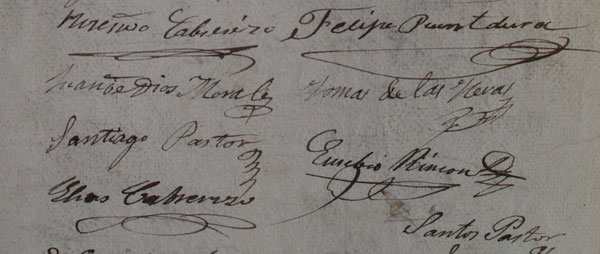 Cabrerizo Felipe Puntdura
Juan de Dios Morale Tomas de las Heras
Santiago Pastor
Eusebio Rincon
Elias Cabrerizo
Santos Pastor